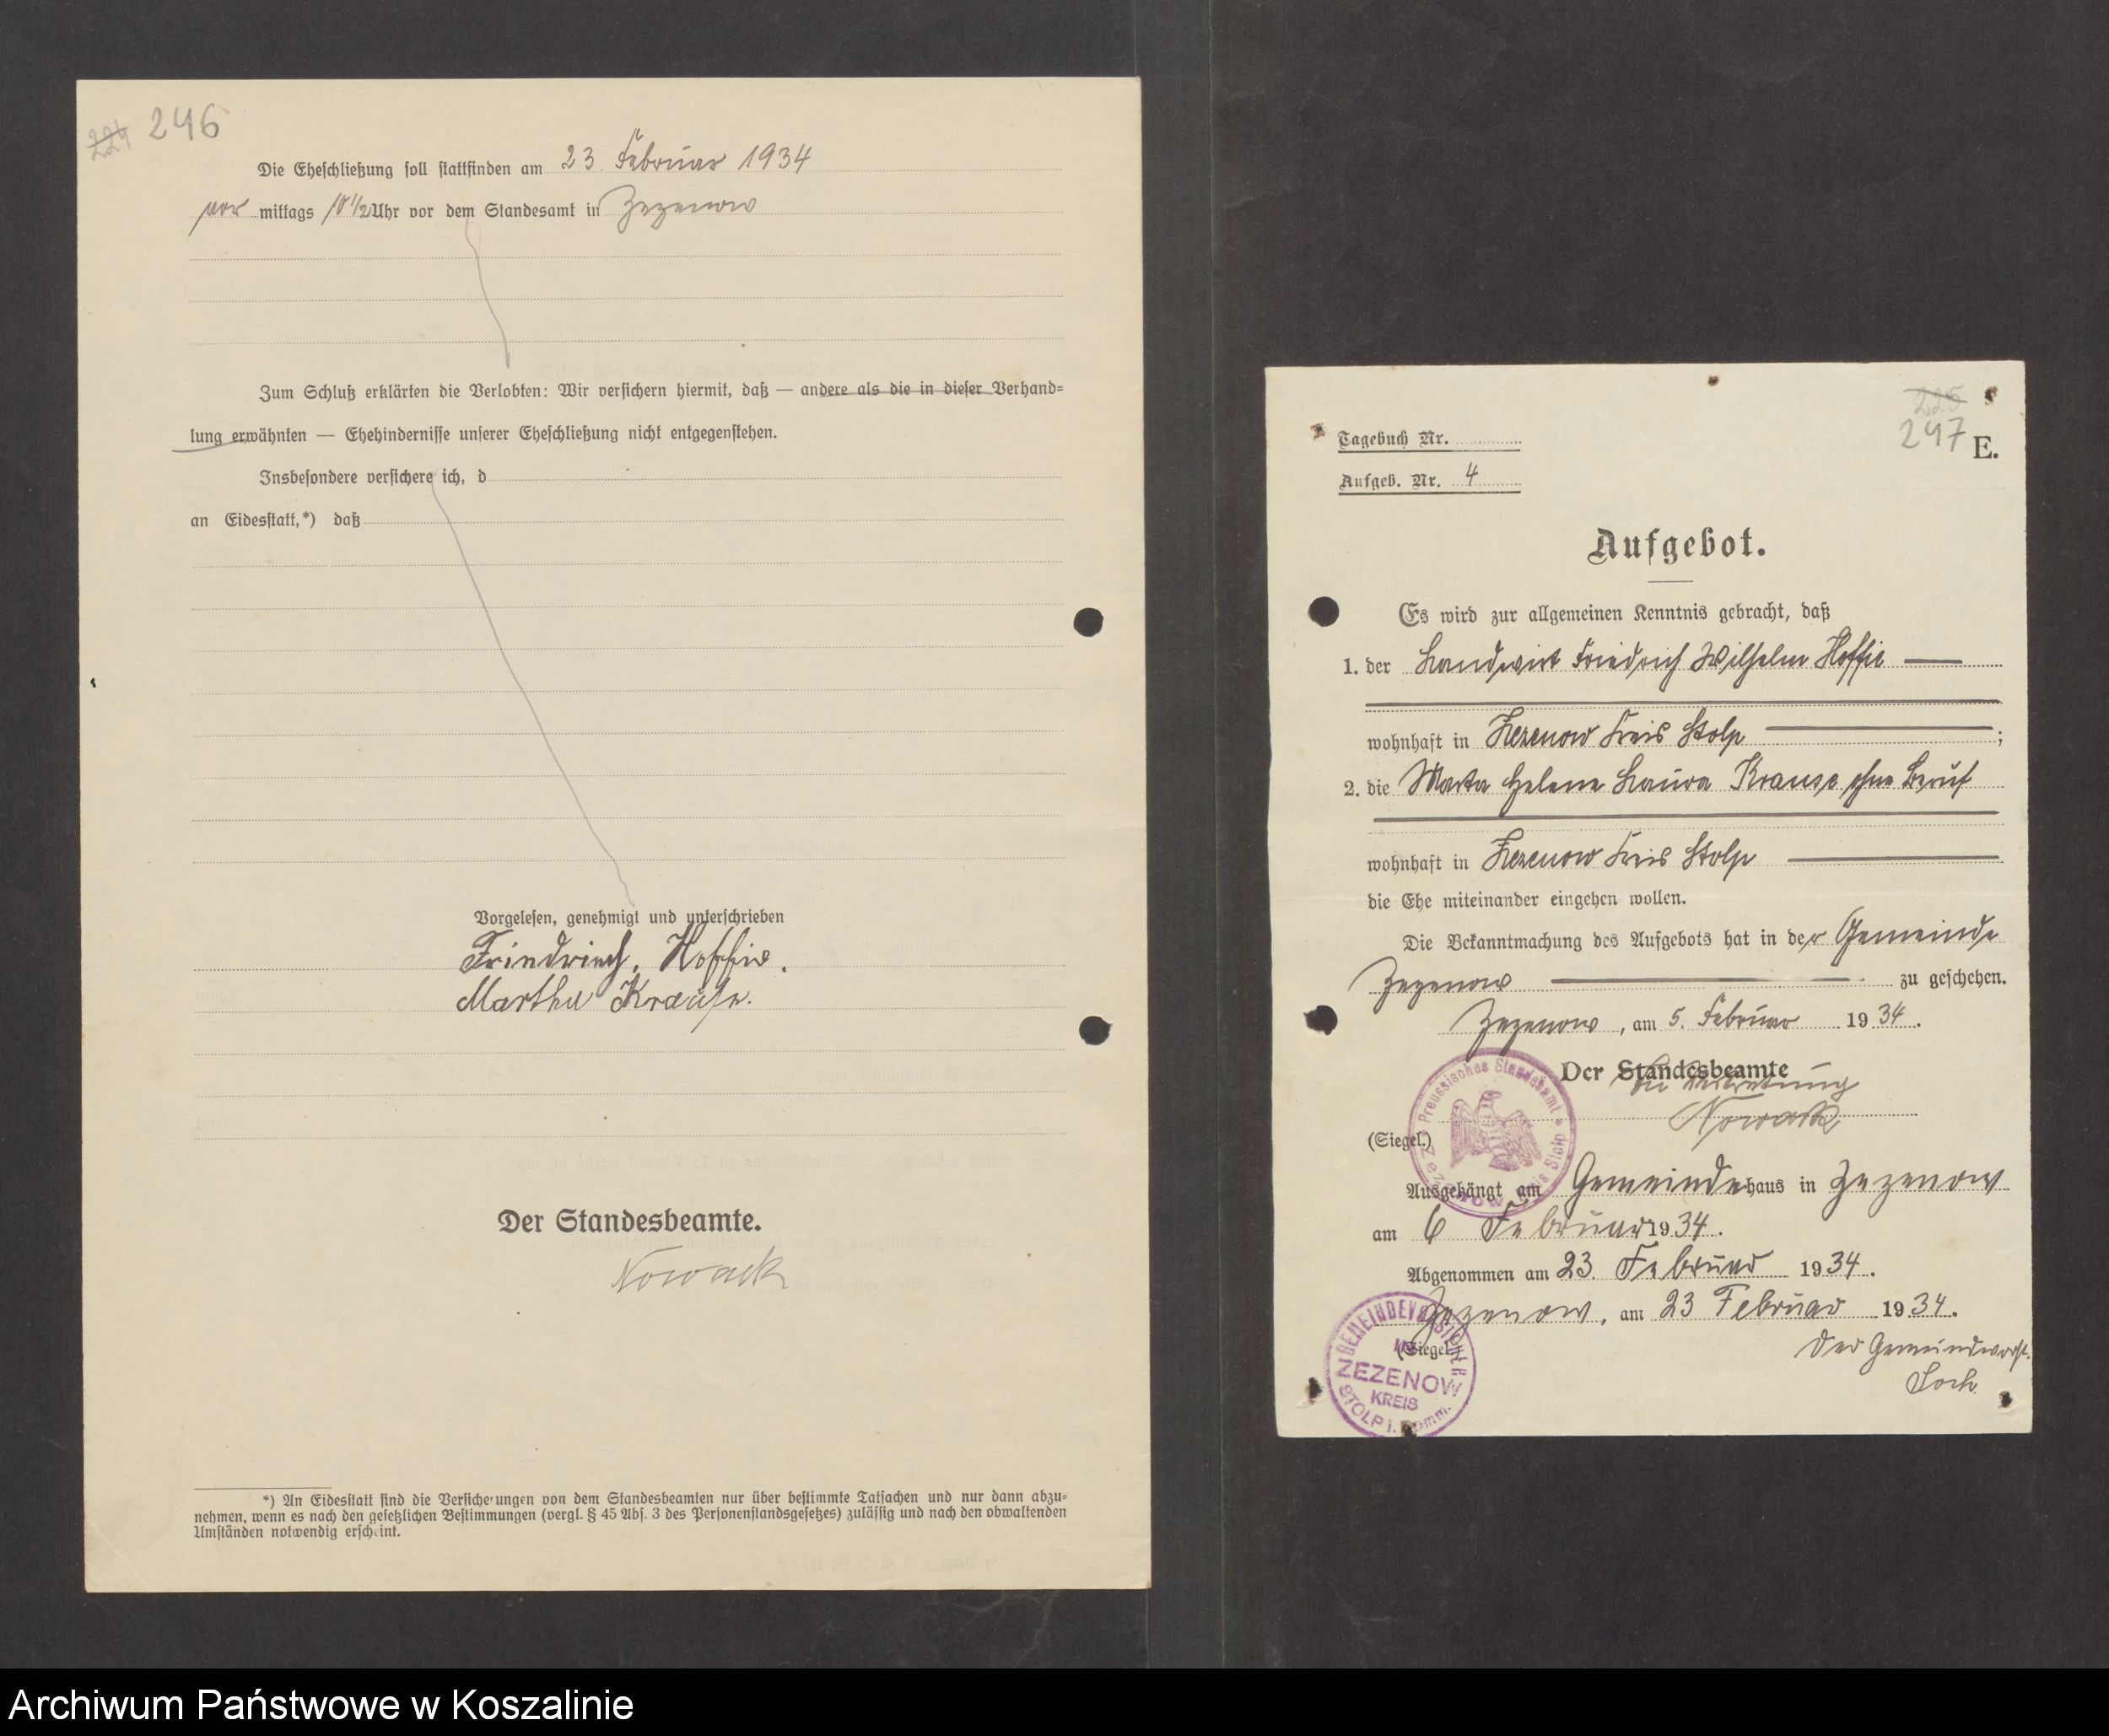 224 246
Die Eheschließung soll stattfinden am 23. Februar 1934
vor mittags 10 1/2 Uhr vor dem Standesamt in Zezenow
Zum Schluß erklärten die Verlobten: Wir versichern hiermit, daß — andere als die in dieser Verhand=
lung erwähnten — Ehehindernisse unserer Eheschließung nicht entgegenstehen.
Insbesondere versichere ich, d
an Eidesstatt,*) daß
Vorgelesen, genehmigt und unterschrieben
Friedrich. Hoffie.
Martha Krause.
Der Standesbeamte.
Nowack
*) An Eidesstatt sind die Versicherungen von dem Standesbeamten nur über bestimmte Tatsachen und nur dann abzu=
nehmen, wenn es nach den gesetzlichen Bestimmungen (vergl. § 45 Abs. 3 des Personenstandsgesetzes) zulässig und nach den obwaltenden
Umständen notwendig erscheint.
225
247 E.
Tagebuch Nr.
Aufgeb. Nr. 4
Aufgebot.
Es wird zur allgemeinen Kenntnis gebracht, daß
1. der Landwirt Friedrich Wilhelm Hoffie
wohnhaft in Zezenow Kreis Stolp ;
2. die Marta Helene Laura Krause ohne Beruf
wohnhaft in Zezenow Kreis Stolp
die Ehe miteinander eingehen wollen.
Die Bekanntmachung des Aufgebots hat in der Gemeinde
Zezenow zu geschehen.
Zezenow, am 5. Februar 1934.
Der Standesbeamte
In Vertretung
Nowack
(Siegel.)
Preussisches Standesamt * Kreis Stolp * Zezenow
Ausgehängt am Gemeindehaus in Zezenow
am 6 Februar 1934.
Abgenommen am 23. Februar 1934.
Zezenow, am 23 Februar 1934.
(Siegel.)
GEMEINDEVORSTEHER
ZEZENOW
KREIS
STOLP i. Pomm.
Der Gemeindevorst.
Archiwum Państwowe w Koszalinie